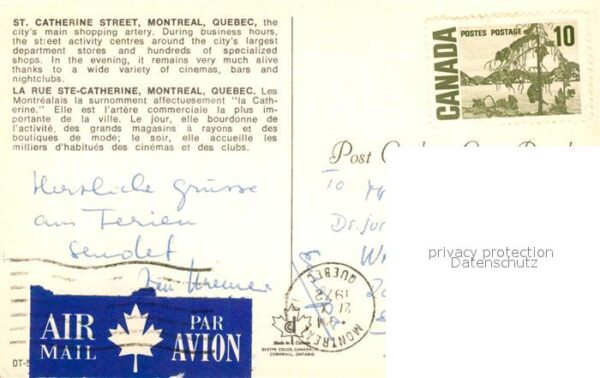 ST. CATHERINE STREET, MONTREAL, QUEBEC, the
city's main shopping artery. During business hours,
the street activity centres around the city's largest
department stores and hundreds of specialized
shops. In the evening, it remains very much alive
thanks to a wide variety of cinemas, bars and
nightclubs.
LA RUE STE-CATHERINE, MONTREAL, QUEBEC. Les
Montréalais la surnomment affectuesement "la Cath-
erine." Elle est l'artère commerciale la plus im-
portante de la ville. Le jour, elle bourdonne de
l'activité, des grands magasins à rayons et des
boutiques de mode; le soir, elle accueille les
milliers d'habitués des cinémas et des clubs.
Herzliche Grüsse
aus Ferien
sendet
AIR
MAIL
PAR
AVION
DT-5
CANADA
POSTES POSTAGE
10
Post
To
Dr. jur
privacy protection
Datenschutz
MONTREAL
QUEBEC
1972
Made in Canada
CORNWALL, ONTARIO